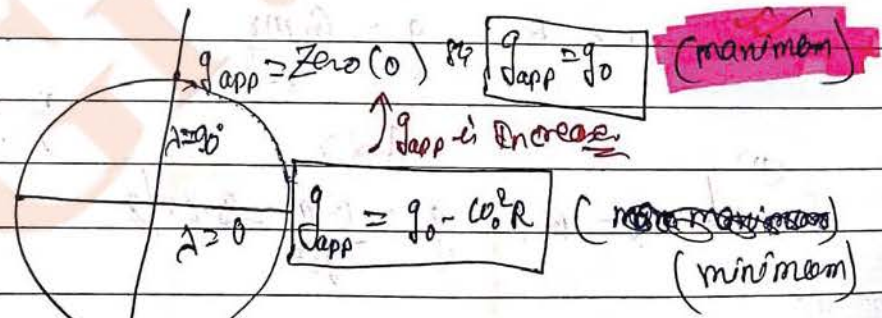 g_app = Zero (0) g_app = g₀ (manimem)
λ=90° ↑ g_app is Increase
λ = 0 g_app = g₀ - ω₀²R
(minimem)